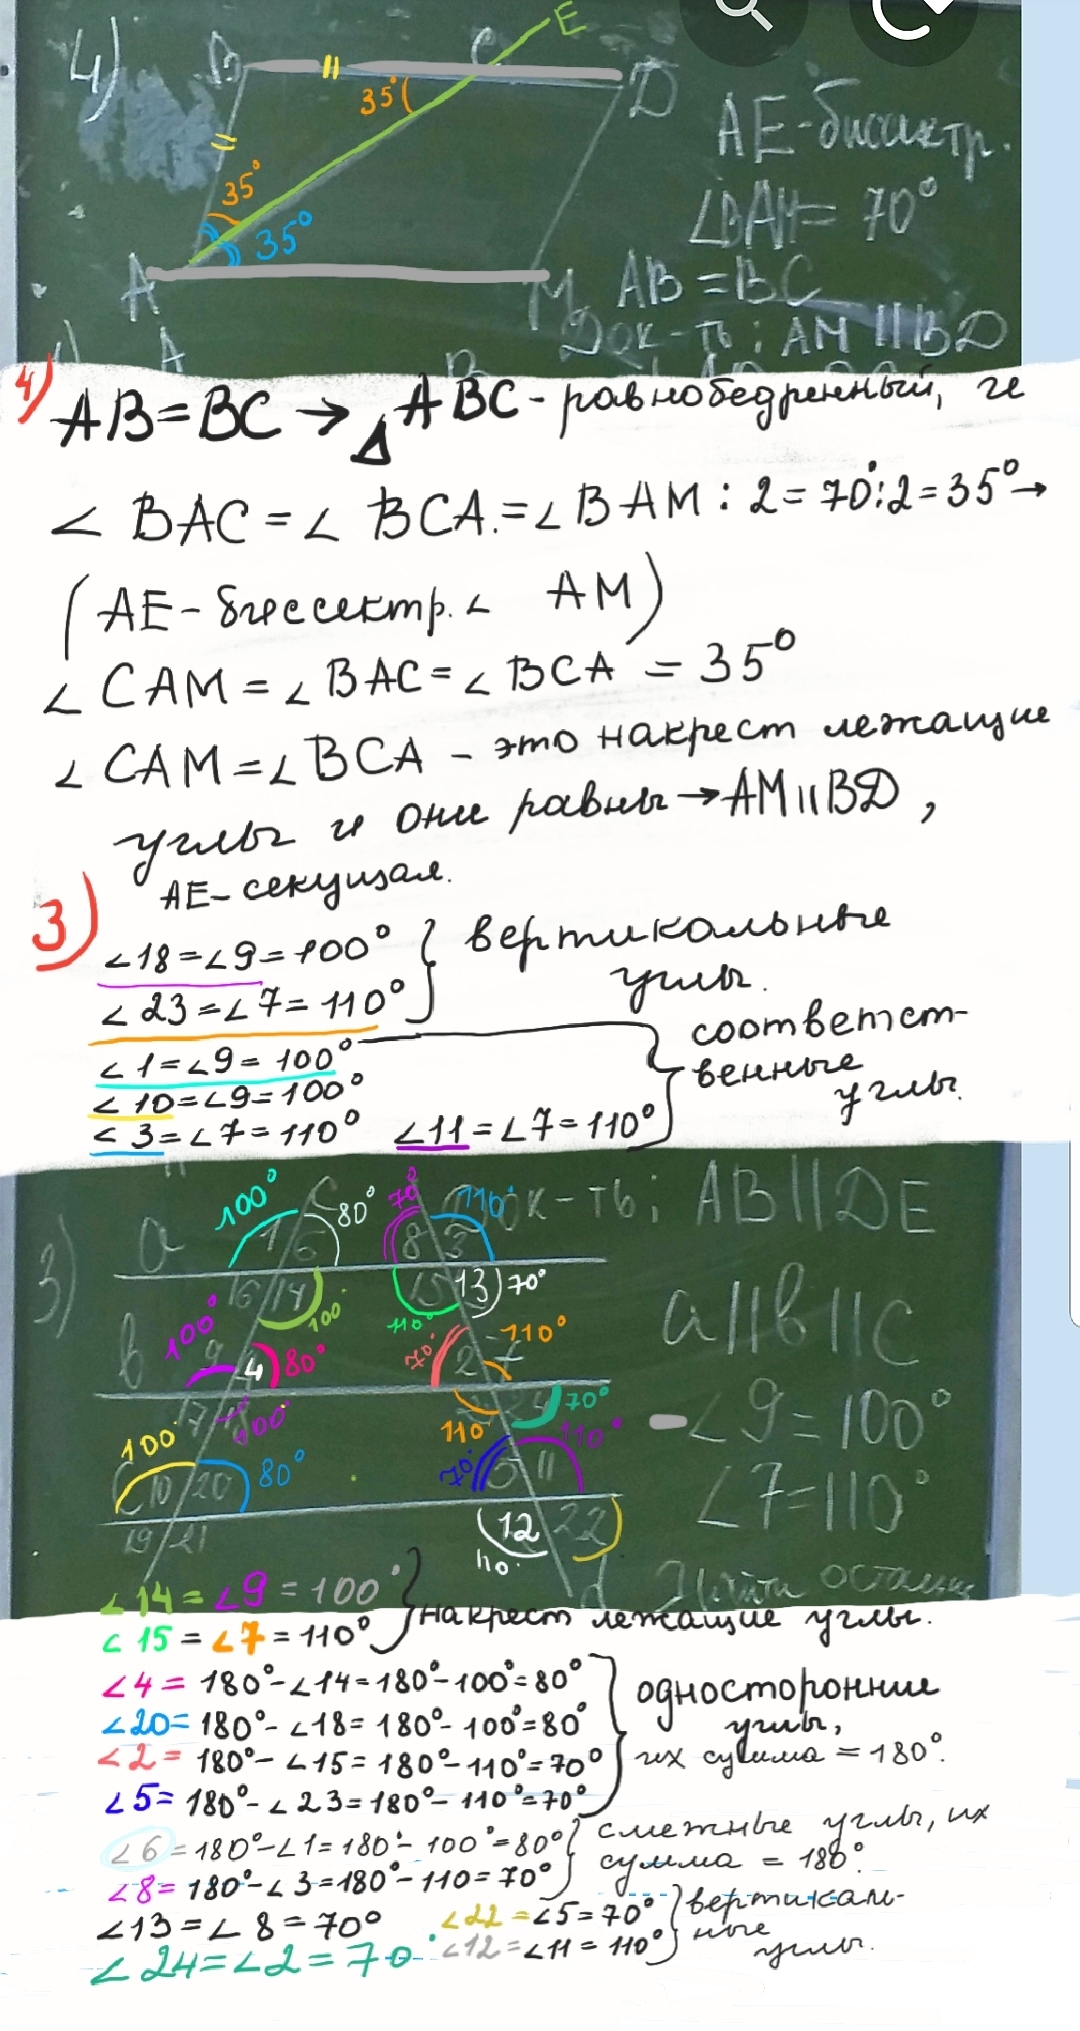 4)
B
C
E
D
35°
35°
35°
A
M
AE-биссектр.
∠BAM = 70°
AB = BC
Док-ть: AM || BD
A
4) AB = BC → △ ABC - равнобедренный, и
∠ BAC = ∠ BCA = ∠ BAM : 2 = 70° : 2 = 35° →
(AE - биссектр. ∠ AM)
∠ CAM = ∠ BAC = ∠ BCA = 35°
∠ CAM = ∠ BCA - это накрест лежащие
углы и они равны → AM || BD,
AE - секущая.
3)
∠18 = ∠9 = 100°
∠23 = ∠7 = 110°
вертикальные
углы.
∠1 = ∠9 = 100°
∠10 = ∠9 = 100°
∠3 = ∠7 = 110° ∠11 = ∠7 = 110°
соответст-
венные
углы.
Док-ть: AB || DE
3)
a
100°
1
6
80°
70°
8
3
110°
16
14
100°
15
13
70°
110°
b
100°
9
4
80°
70°
2
7
110°
17
18
100°
110
24
70°
110°
C
100°
10
20
80°
70°
5
11
19
21
12
22
110°
d
a || b || c
∠9 = 100°
∠7 = 110°
Найти
∠14 = ∠9 = 100°
∠15 = ∠7 = 110°
накрест лежащие углы.
∠4 = 180° - ∠14 = 180° - 100° = 80°
∠20 = 180° - ∠18 = 180° - 100° = 80°
∠2 = 180° - ∠15 = 180° - 110° = 70°
∠5 = 180° - ∠23 = 180° - 110° = 70°
односторонние
углы,
их сумма = 180°.
∠6 = 180° - ∠1 = 180° - 100° = 80°
∠8 = 180° - ∠3 = 180° - 110 = 70°
смежные углы, их
сумма = 180°.
∠13 = ∠8 = 70° ∠22 = ∠5 = 70°
∠24 = ∠2 = 70° ∠12 = ∠11 = 110°
вертикаль-
ные
углы.